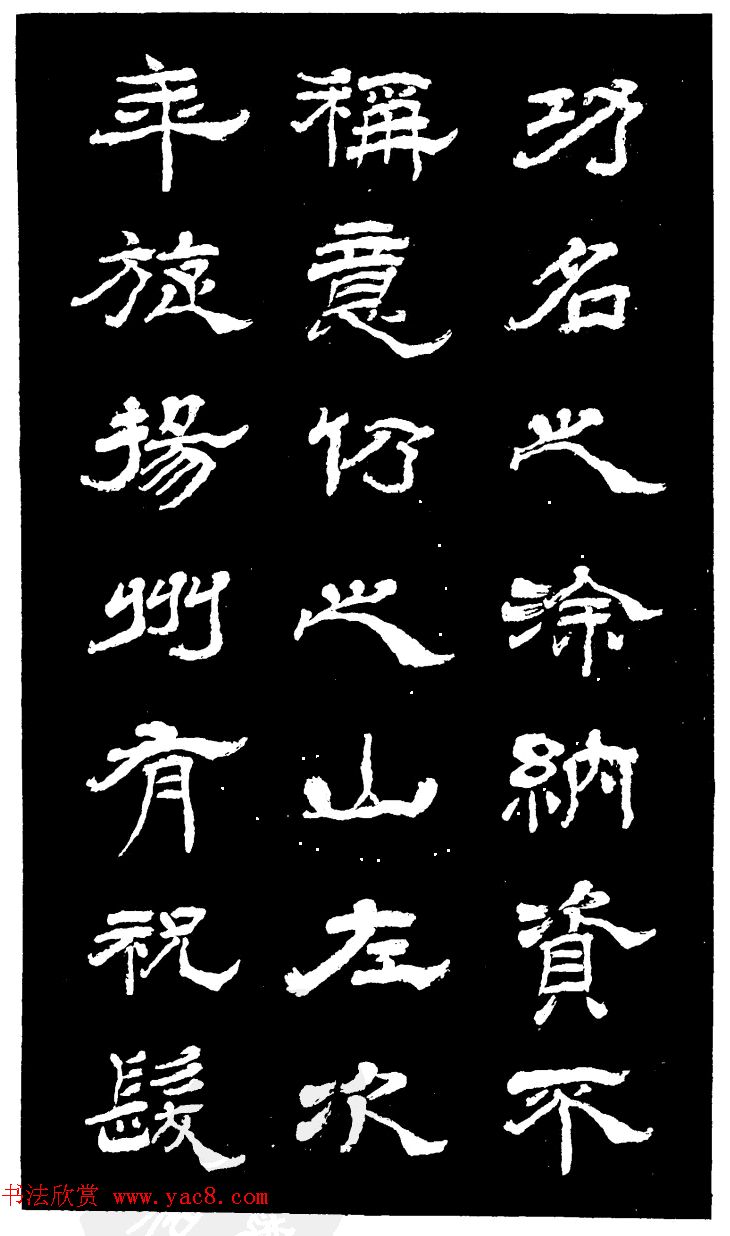 功名之涂納資不
稱意仍之山左次
年旋揚州有祝髮
书法欣赏 www.yac8.com